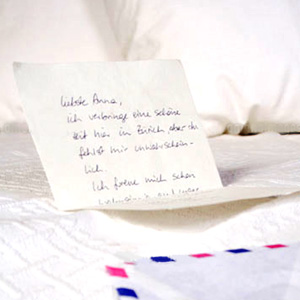 liebste Anna,
ich verbringe eine schöne
zeit hier in Zürich aber du
fehlst mir unwahrschein-
lich.
Ich freue mich schon